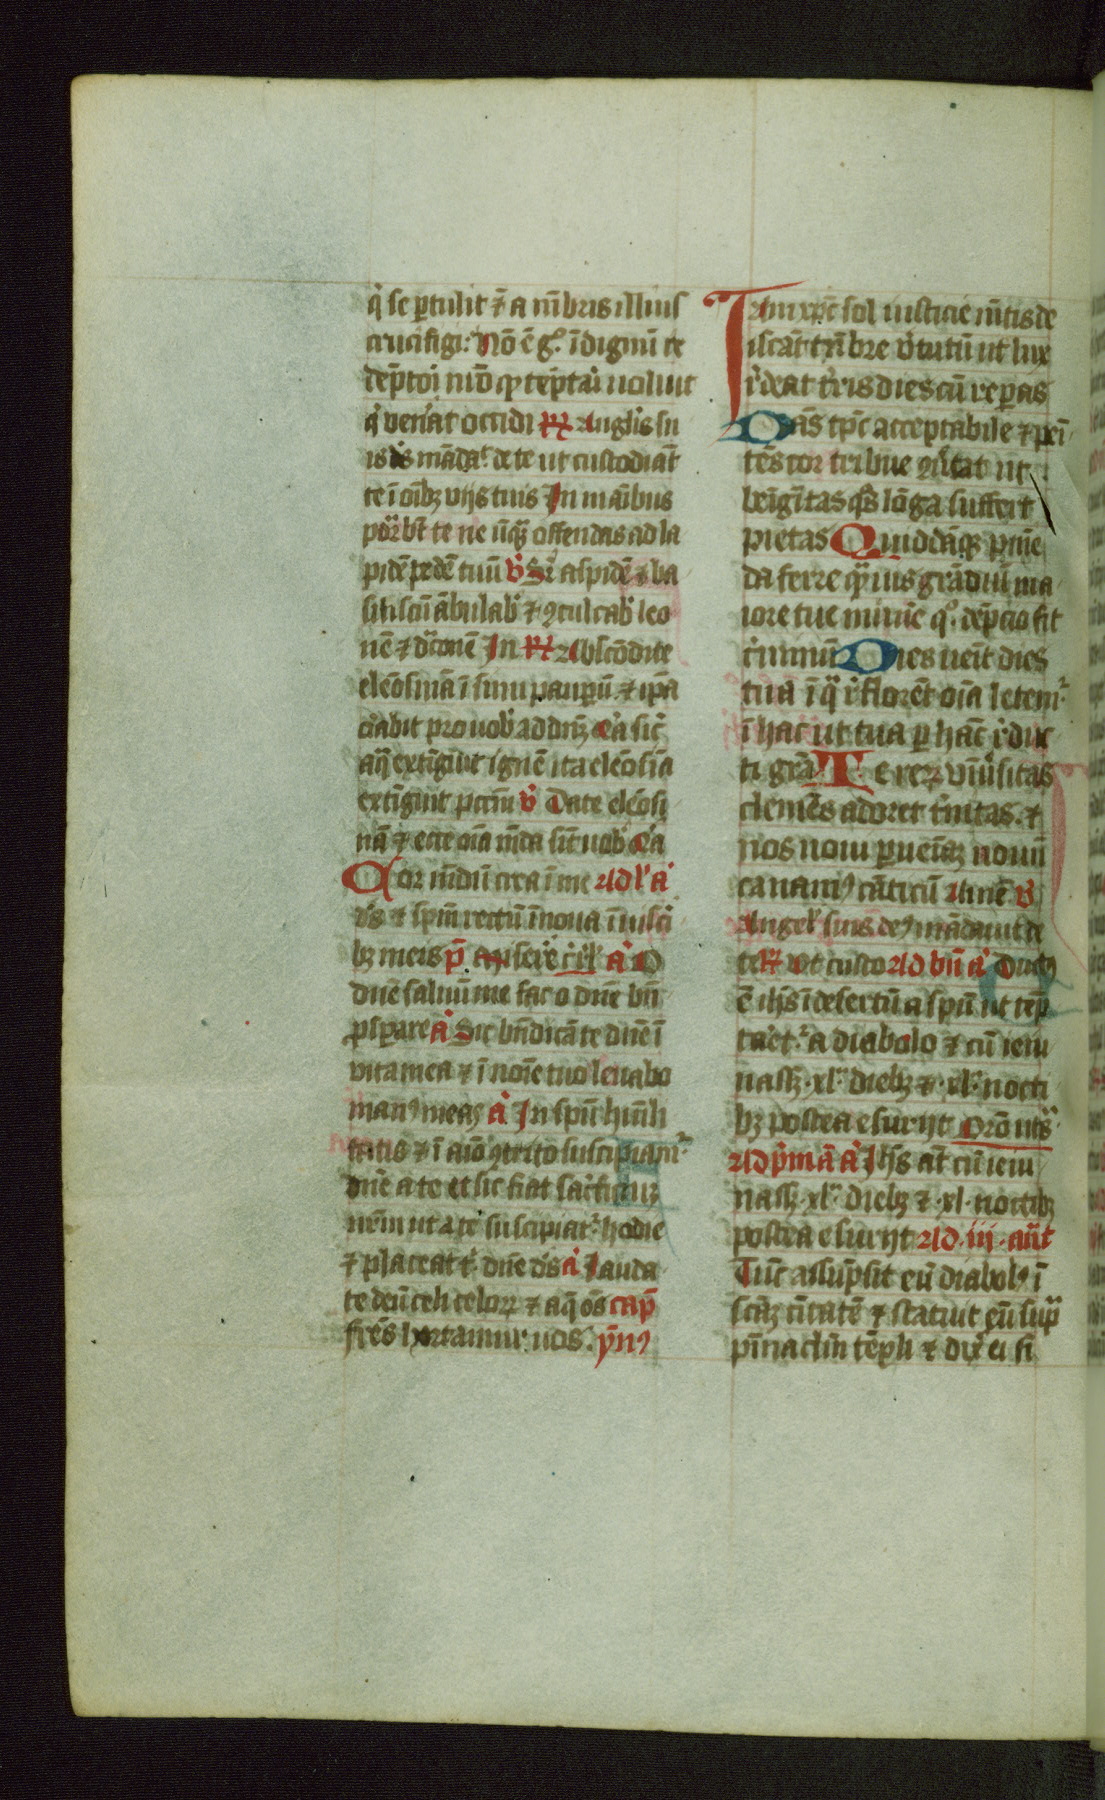 q̇ se ꝑtulit ⁊̄ a mēbris illius
crucifigi: Nō ē gͦ. īdignū te
dep̄toi nr̄o qͥ tēptaī uoluit
q̇ ven̄at occidi ℟ Angl̄is su
is ds̄ māda. de te ut custodiāt
te ī oībꝫ vijs tuis In māībus
por̄bt te ne ūqͣꝫ offendas ad la
pidē pedē tuū v̇ Sr̄ aspidē ⁊ ba
siliscū ābulab̄ ⁊ ꝯculcab̄ leo
nē ⁊ dͣconē In ℟ Absc̄ōdite
elēosinā ī sinu pauꝑū ⁊ ip̄a
orabit pro uob̄ ad dn̄ꝫ Ca sic̄
aqͣ extīguit ignē ita elēosīa
extīguit pcc̄m v̇ Date elēosi
nā ⁊ ecce oīa mūda sūt uob̄ Ca
Cor mūdū crea ī me Ad l' a
ds̄ ⁊ spm̄ rectū īnoua ī uisci
bꝫ meis p̄ Misere a O
dn̄e saluū me fac o dn̄e bn̄
ꝓsꝑare a Sic bn̄dicā te dn̄e ī
vita mea ⁊ ī noīe tuo leuabo
manꝰ meas a In spū humi
tatis ⁊ ī aīo ꝯtrito suscipiamͬ
dn̄e a te et sic fiat sacͥficiuꝫ
nrm̄ ut a te suscipiatͬ hodie
⁊ placeat tͥ dn̄e ds̄ a Lauda
te deū celi celoꝝ ⁊ aq̄ oēs cap̄
frēs hortamur uos. ẏnꝰ
Iam xpē sol iusticie mētis de
iscāt tn̄bre v̄tutū ut lux
r̄deat tr̄ris dies cū reꝑas
Dans tp̄c acceptabile ⁊ peī
tēs cor tribue ꝯūtat ut
beīgītas qͦs lōga suffert
pietas Quiddāqꝫ pnīe
da ferre qͣuis grādiuꝫ ma
iore tue mun̄e qͦ. dep̄cio fit
cͥminū Dies ueīt dies
tua ī qͣ r̄florēt oīa letemͬ
ī hac ut tua ꝑ hāc r̄duc
ti grā Te reꝝ vniūsitas
clemēs adoret tͥnitas. ⁊
nos noui ꝑ ueīāꝫ nouū
canamꝰ cāticū Amē v̇
Angel' suis deꝰ mādauit de
te ℟ Vt custo Ad bn̄ a Ductꝫ
ē ih̄s ī desertū a spū ut tēp
taret͛ a diabolo ⁊ cū ieiu
nassꝫ ·xl· diebꝫ ⁊ ·xl· nocti
bꝫ postea esurijt Orō ut sͣ
Ad pͥmā a Ih̄s āt cū ieiu
nassꝫ ·xl· diebꝫ ⁊ ·xl· noctibꝫ
postea esurijt Ad ·iij· ant
Tūc assūpsit eū diabolꝰ ī
scāꝫ ciuitatē ⁊ statuit eū supͣ
pīnaclm̄ tēpli ⁊ dix̄ ei si